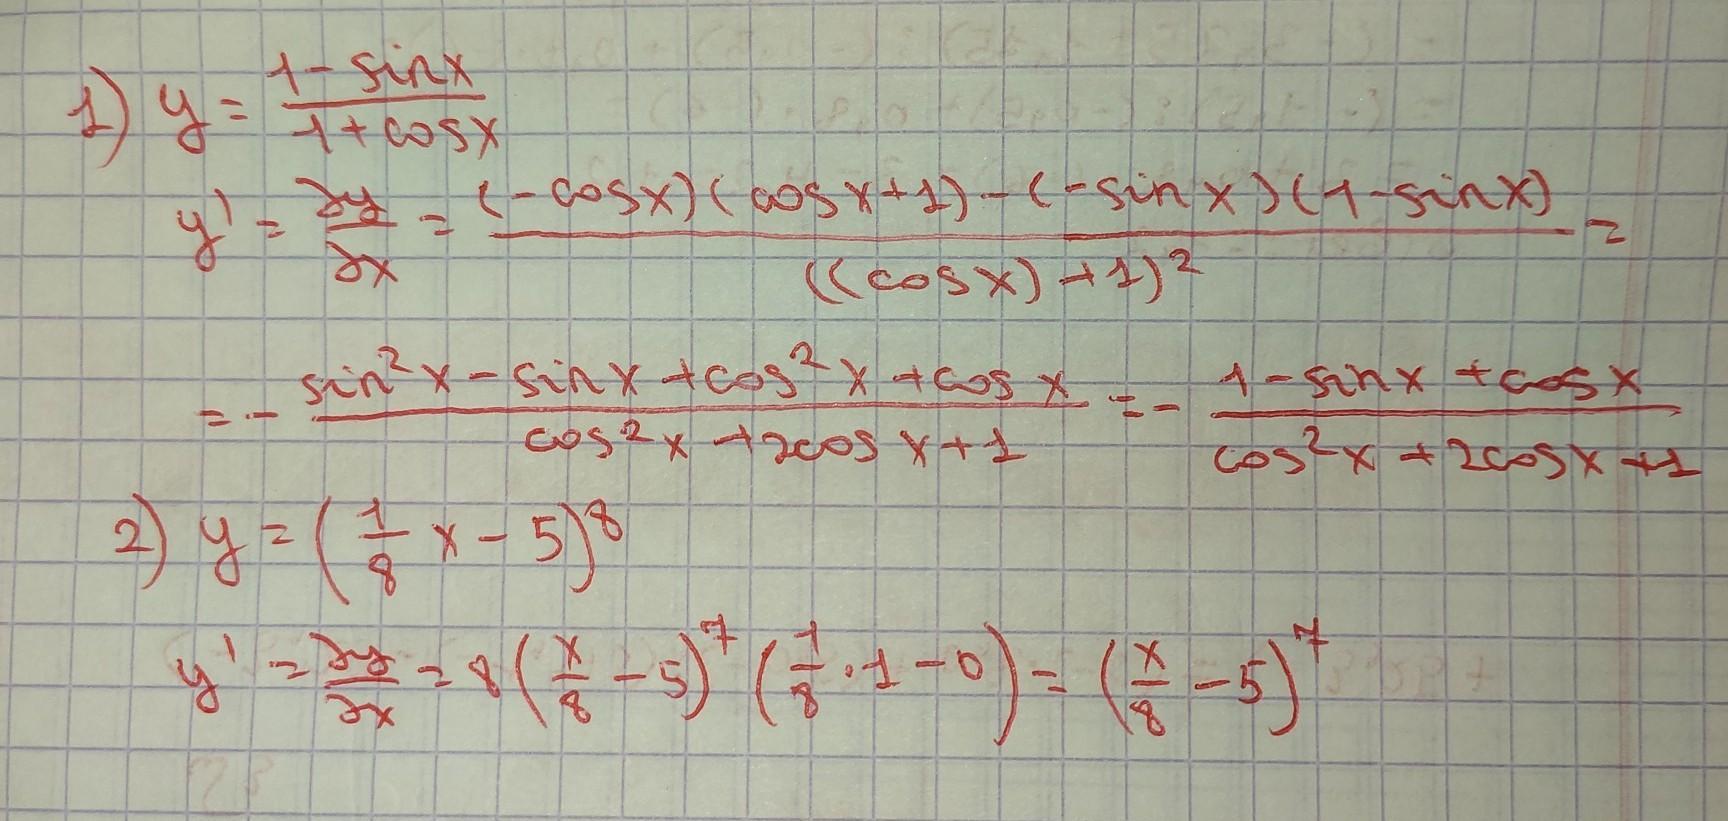 1) y = (1 - sinx)/(1 + cosx)
y' = ∂y/∂x = ((-cosx)(cosx+1) - (-sinx)(1-sinx))/((cosx)+1)² =
= - (sin²x - sinx + cos²x + cosx)/(cos²x + 2cosx + 1) = - (1 - sinx + cosx)/(cos²x + 2cosx + 1)
2) y = (1/8 x - 5)⁸
y' = ∂y/∂x = 8(x/8 - 5)⁷(1/8 · 1 - 0) = (x/8 - 5)⁷